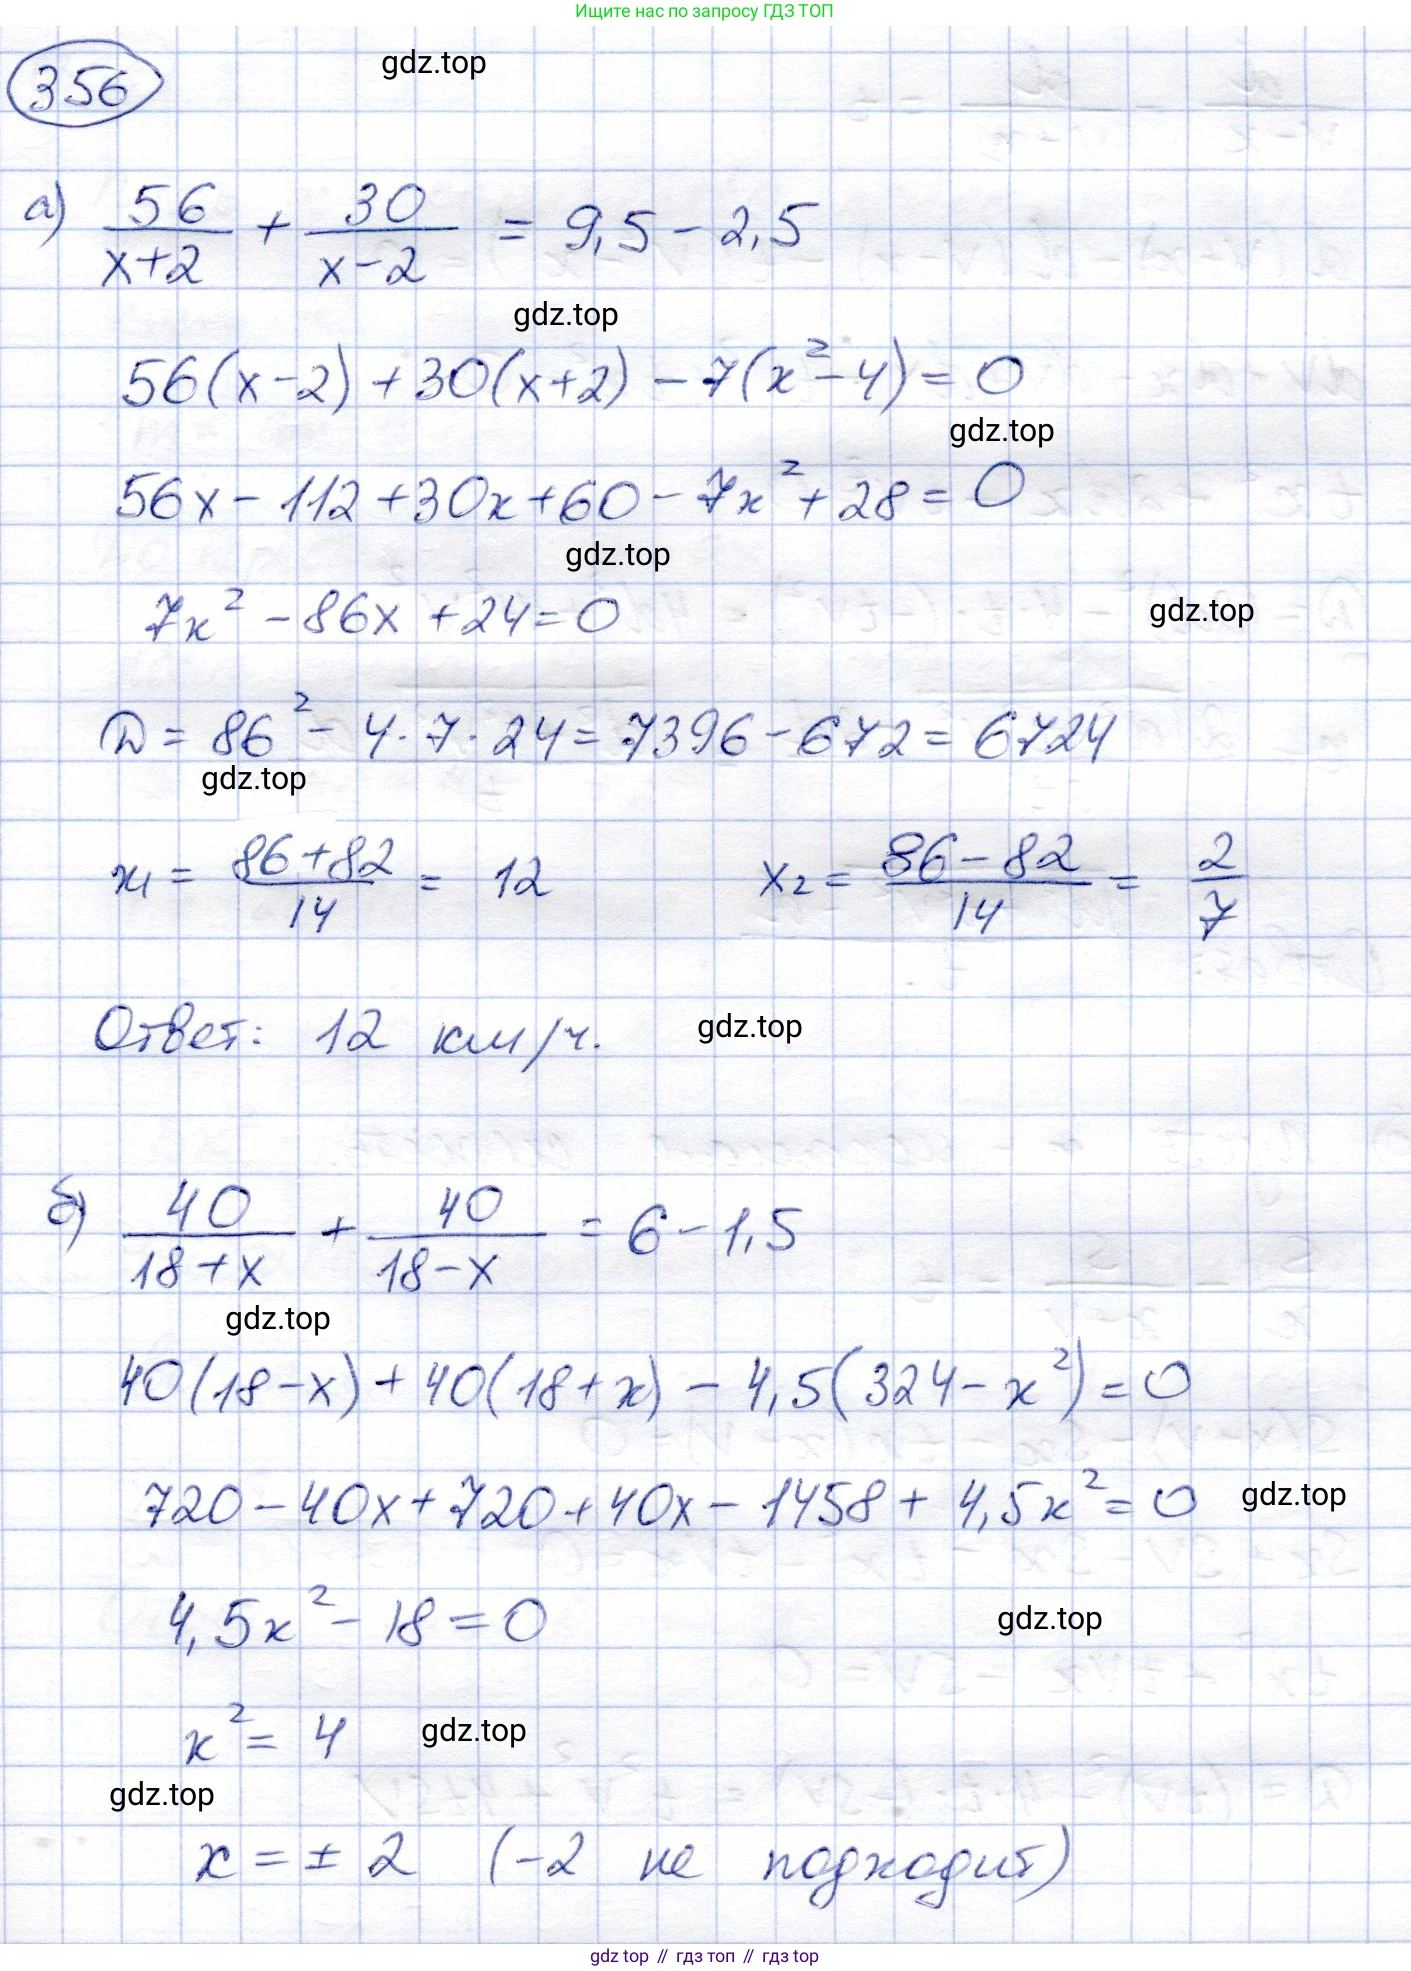 Ищите нас по запросу ГДЗ ТОП
356
gdz.top
а) 56/(x+2) + 30/(x-2) = 9,5 - 2,5
gdz.top
56(x-2) + 30(x+2) - 7(x² - 4) = 0
gdz.top
56x - 112 + 30x + 60 - 7x² + 28 = 0
gdz.top
7x² - 86x + 24 = 0
gdz.top
D = 86² - 4 · 7 · 24 = 7396 - 672 = 6724
gdz.top
x₁ = (86+82)/14 = 12 x₂ = (86-82)/14 = 2/7
Ответ: 12 км/ч.
gdz.top
б) 40/(18+x) + 40/(18-x) = 6 - 1,5
gdz.top
40(18-x) + 40(18+x) - 4,5(324 - x²) = 0
720 - 40x + 720 + 40x - 1458 + 4,5x² = 0
gdz.top
4,5x² - 18 = 0
gdz.top
x² = 4
gdz.top
gdz.top
x = ± 2 (-2 не подходит)
gdz top // гдз топ // гдз top